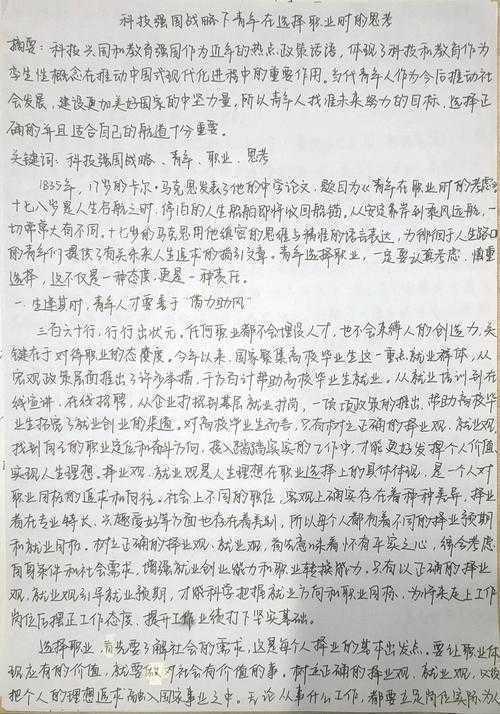 科技强国战略下青年在选择职业时的思考
摘要：科技兴国和教育强国作为近年的热点政策话语，体现了科技和教育作为
孪生性概念在推动中国式现代化进程中的重要作用。当代青年人作为今后推动社
会发展，建设更加美好国家的中坚力量，所以青年人找准未来努力的目标，选择正
确的并且适合自己的航道十分重要。
关键词：科技强国战略、青年、职业、思考
1835年，17岁的卡尔·马克思发表了他的中学论文，题目为《青年在职业时的考虑》
十七八岁是人生启航之时，停泊的人生船舶即将收回船锚。从安定靠岸到乘风远航，一
切带来大有不同。十七岁的马克思用他缜密的思维与精准的语言表达，为徘徊于人生路口
的青年们提供了有关未来人生追求的指引文章。青年选择职业，一定要认真考虑，慎重
选择，这不仅是一种态度，更是一种责任。
一、生逢其时，青年人才要善于“借力助风”
三百六十行，行行出状元。任何职业都不会埋没人才，也不会束缚人的创造力，关
键在于对待职业的态度。今年以来，国家聚集高校毕业生这一重点就业群体，从
宏观政策层面推出了许多举措，千方百计帮助高校毕业生就业。从就业培训到在
线宣讲、在线招聘，从企业扩招到基层就业扩岗，一项项政策的推出，帮助高校毕业
生拓展了就业创业的渠道。对高校毕业生而言，只有树立正确的择业观、就业观，
找到自己的职业定位和奋斗方向，投入到踏踏实实的工作中，才能更好发挥个人价值、
实现人生理想。择业观、就业观是人生理想在职业选择上的具体体现，是一个人对
职业目标的追求和向往。社会上不同的职位，客观上确实存在着种种差异，择业
者在专业特长、兴趣爱好等方面也存在着差别，所以每个人都有着不同的择业预期
和就业目标。树立正确的择业观、就业观，首先意味着怀有平实之心，综合考虑
自身条件和社会需求，增强就业创业能力和职业转换能力。只有以正确的择业
观、就业观引导就业预期，才能科学把握就业方向和职业目标，为将来走上工作
岗位后摆正工作态度、提升工作业绩打下坚实基础。
选择职业，首先要了解社会的需求，这是每个人择业的基本出发点。要让职业体
现应有的价值，就要做对社会有价值的事。树立正确的择业观、就业观，必须
把个人的理想追求融入国家事业之中。无论从事什么工作，都要立足岗位实际，为人